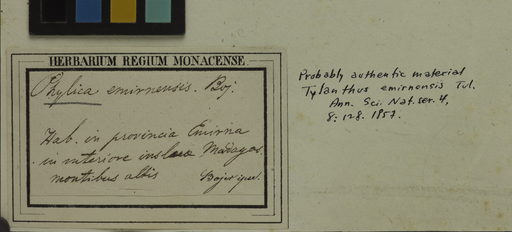 HERBARIUM REGIUM MONACENSE.
Phylica emirnensis. Boj.
Hab. in provincia Emirna
in interiore insulae Madagas.
montibus altis
Bojer ipse.
Probably authentic material
Tylanthus emirnensis Tul.
Ann. Sci. Nat. ser. 4,
8: 128. 1857.